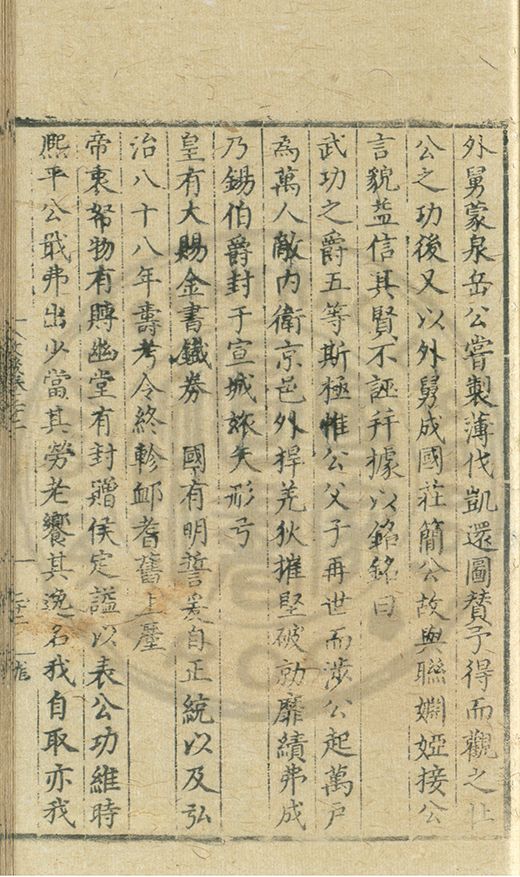 外舅蒙泉岳公嘗製薄伐凱還圖賛予得而觀之壯
公之功後又以外舅成國莊簡公故與聯婣婭接公
言貌益信其賢不誣并據以銘銘曰
武功之爵五等斯極惟公父子再世而渉公起萬戸
為萬人敵内衛京邑外捍羌狄摧堅破勍靡績弗成
乃錫伯爵封于宣城玈矢彤弓
皇有大賜金書鐵券　國有明誓爰自正統以及弘
治八十八年壽考令終軫卹耆舊上塵
帝衷帑物有賻幽堂有封贈侯定謚以表公功維時
熙平公戢弗出少當其勞老饗其逸名我自取亦我